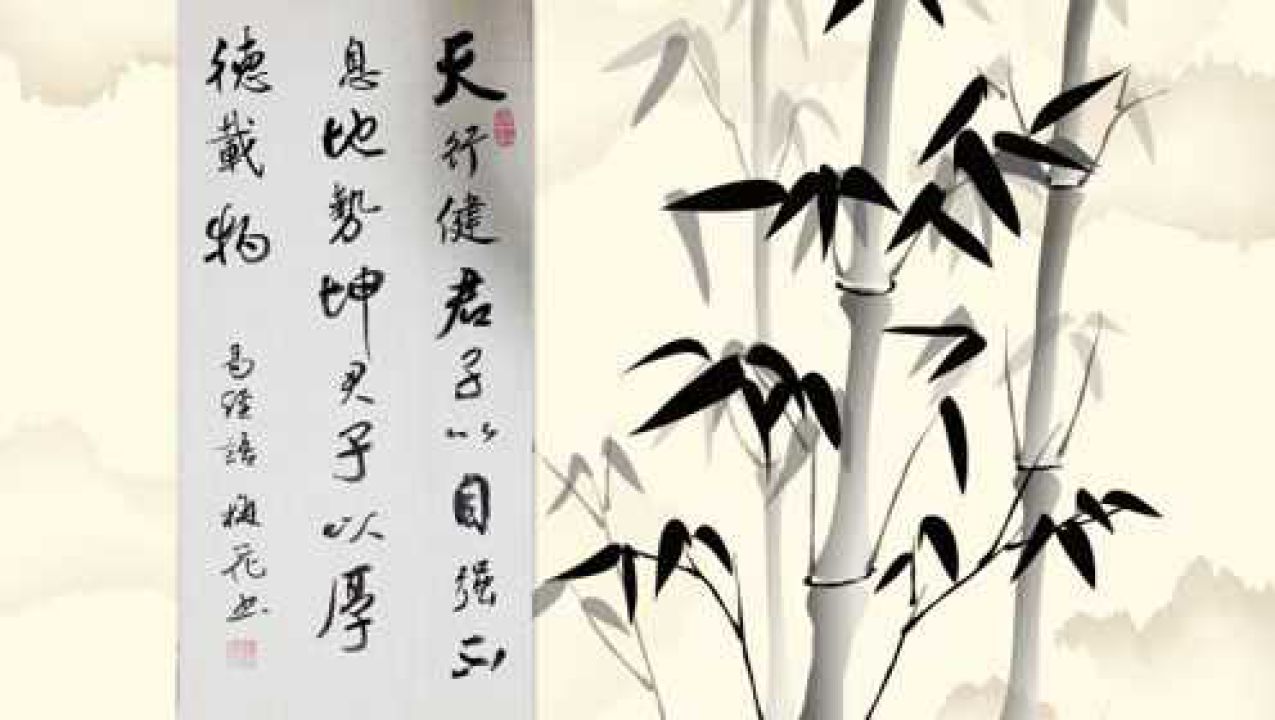 天行健君子以自强不
息地势坤君子以厚
德载物
易经语 梅花书